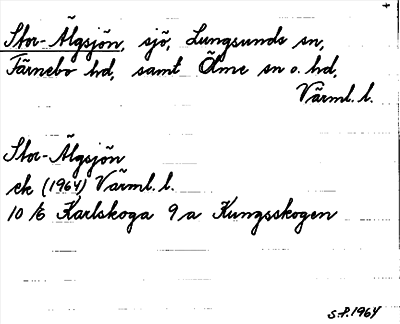 Stor-Älgsjön, sjö, Lungsunds sn,
Färnebo hd, samt Ölme sn o. hd,
Värml. l.
Stor-Älgsjön
ek (1964) Värml. l.
10 /6 Karlskoga 9 a Kungsskogen
S.P. 1964